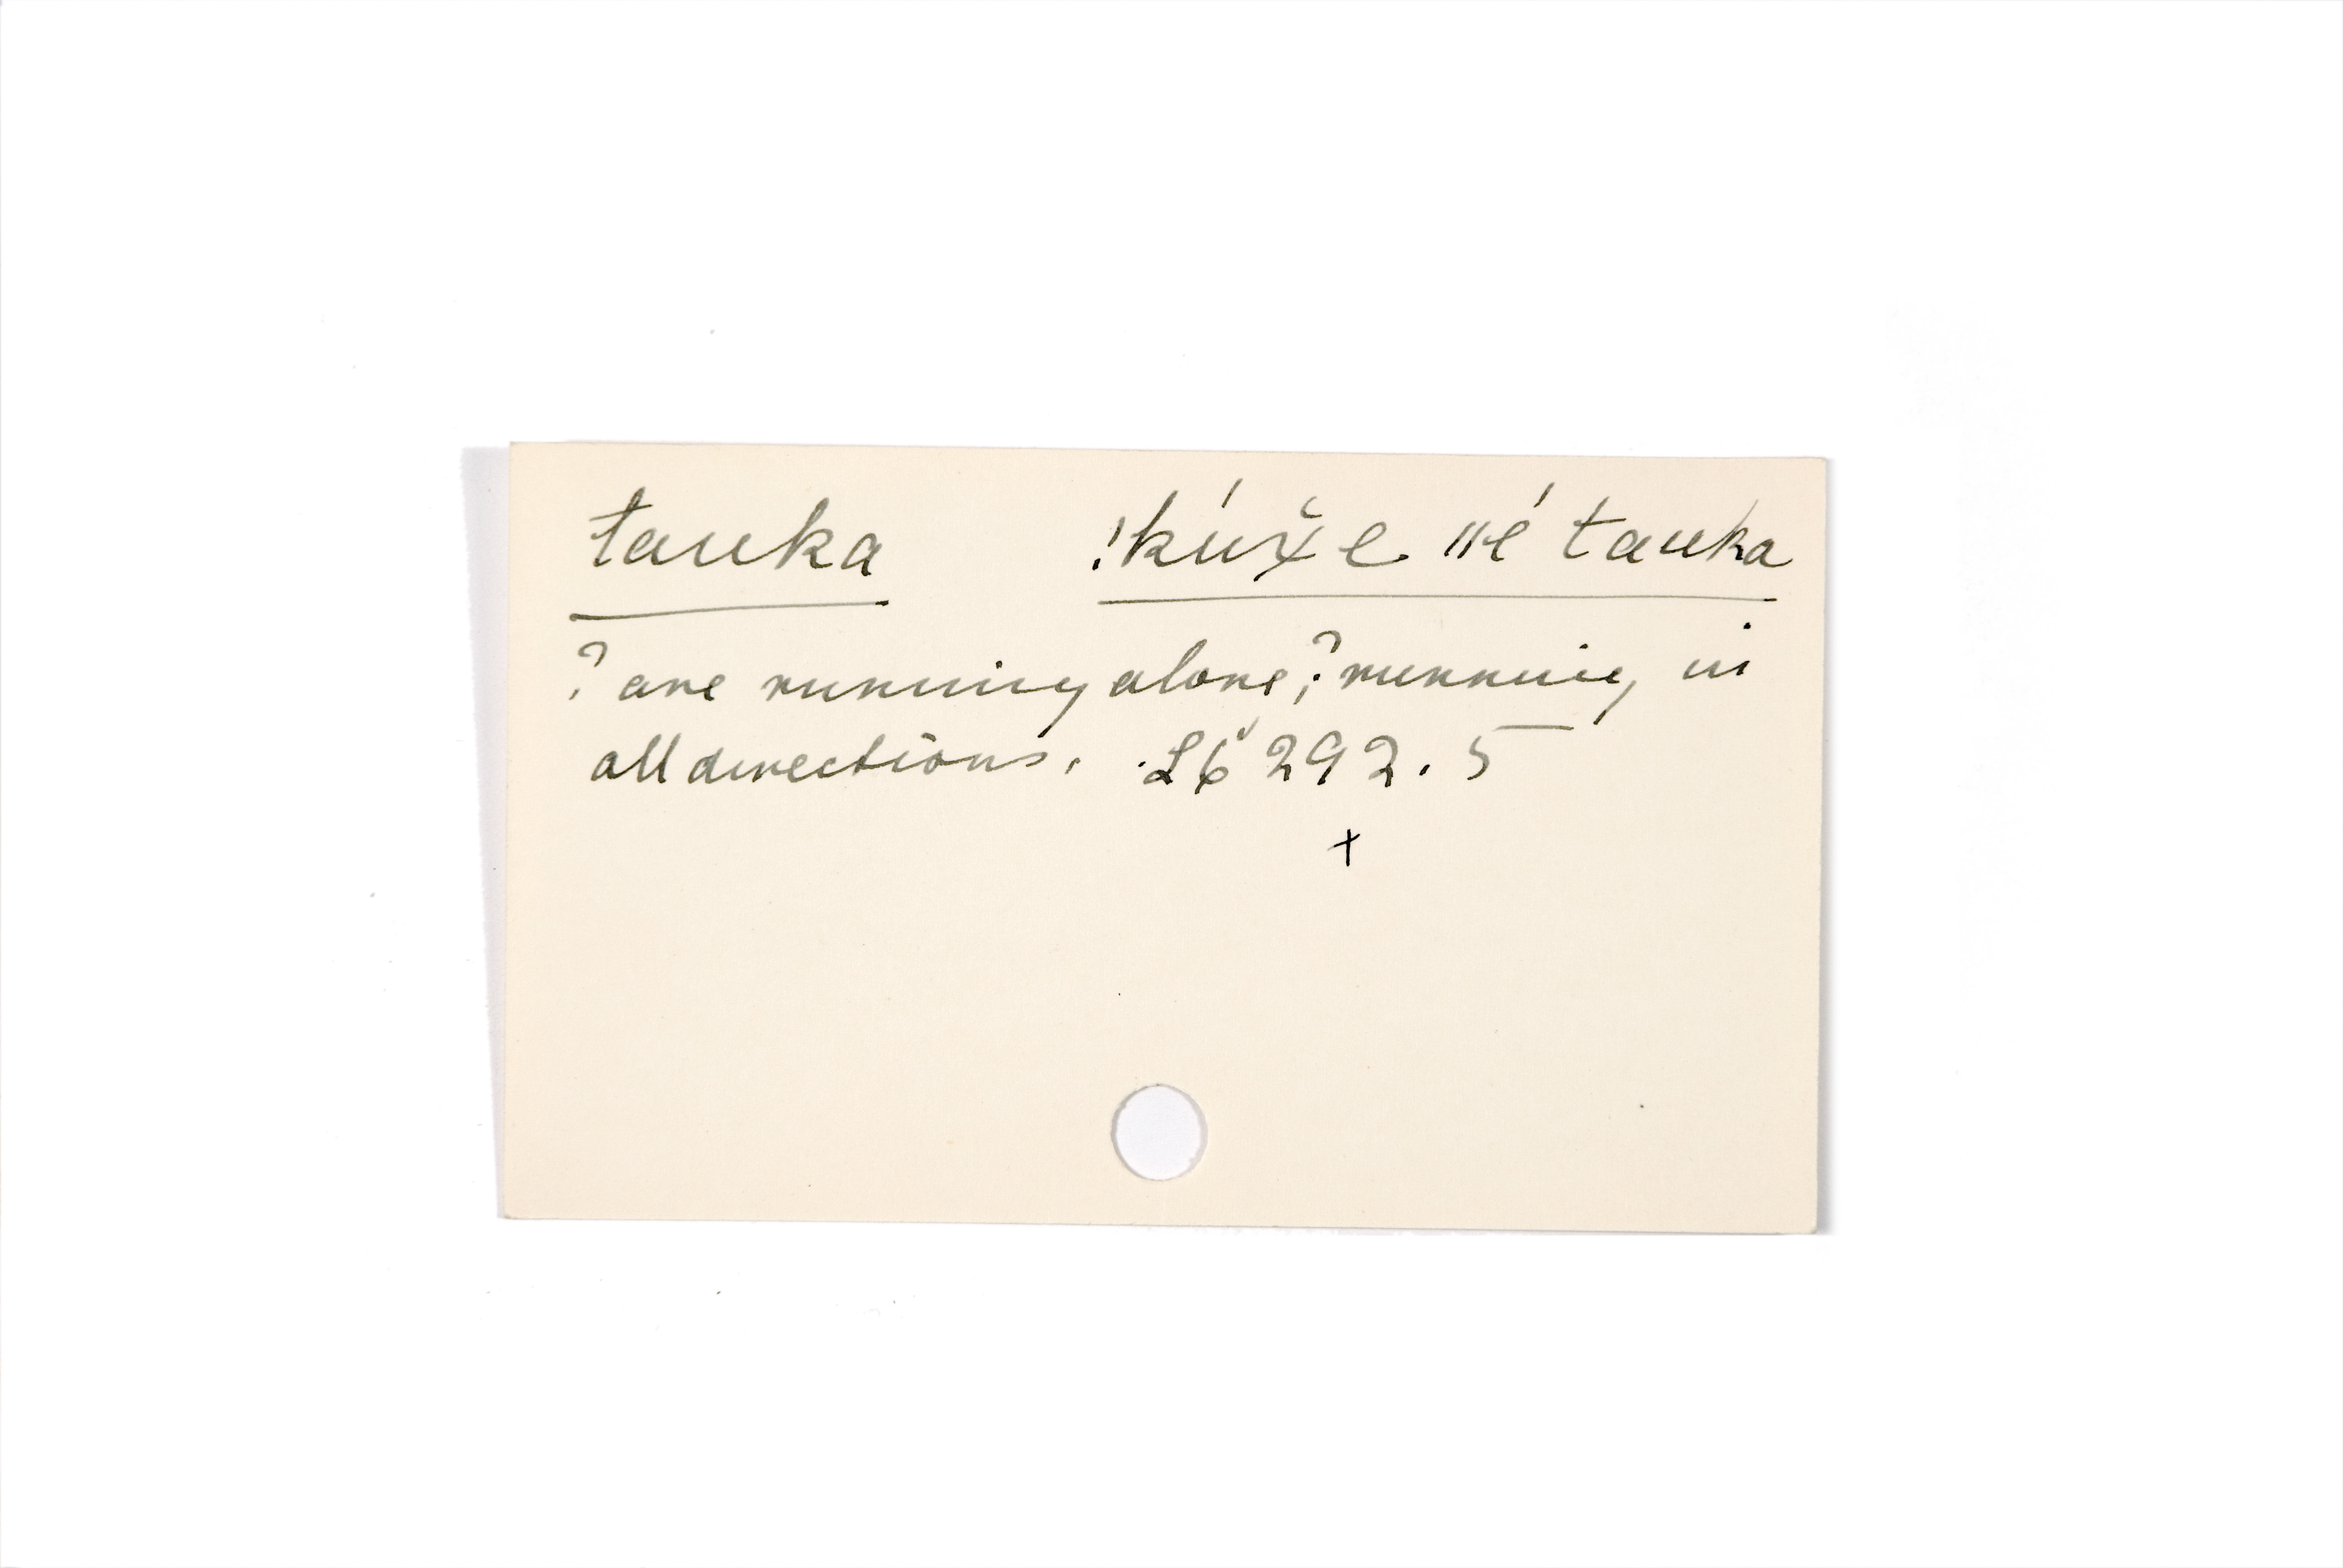 tauka !kúx̌e ǁé tauka
? are running alone; ? running in
all directions. L6 292.5
+